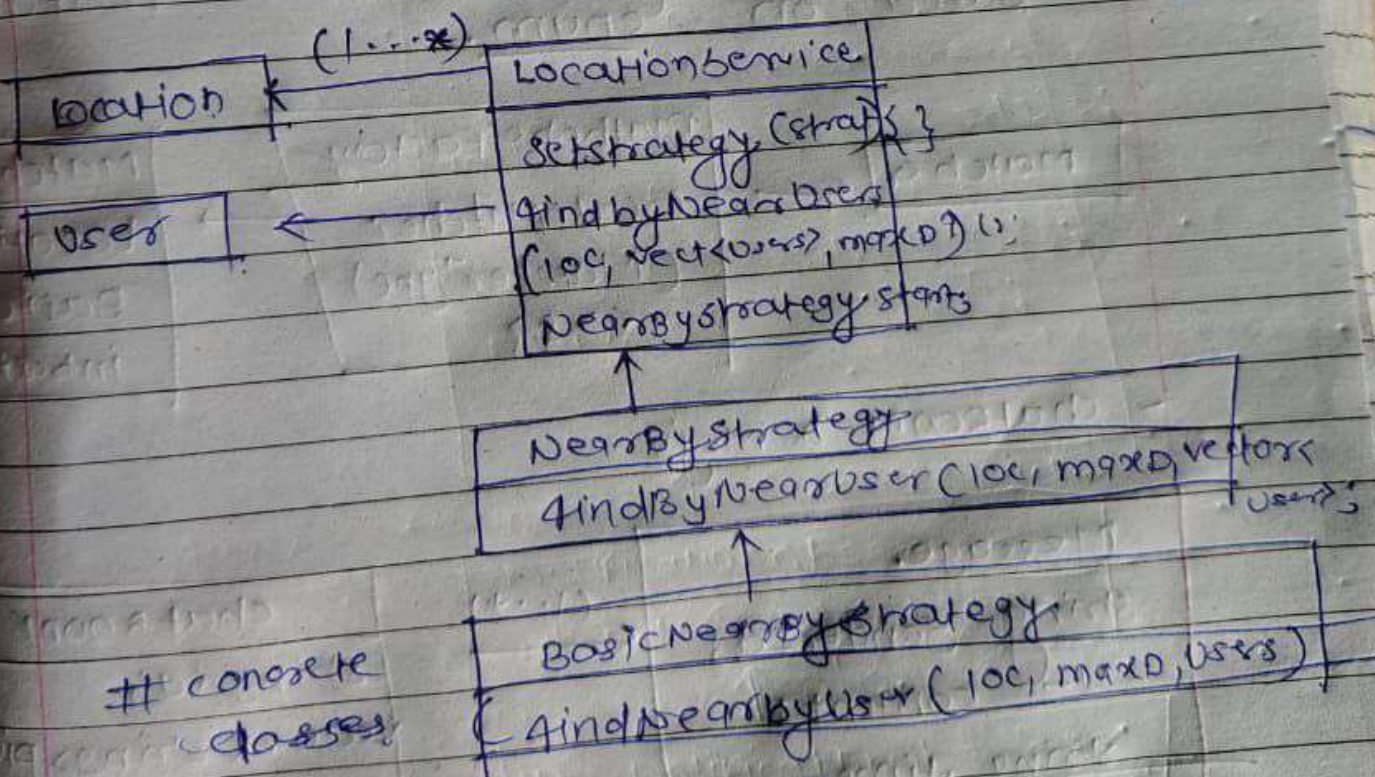 (1...*)
Location
LocationService
setstrategy (strat){ }
User
findbyNearUsers
(loc, vect<Users>, maxD) ();
NearBystrategy strat;
NearByStrategy
findByNearUser (loc, maxD, vector<
User>;
BasicNearByStrategy
# concrete
classes
findNearByUser ( loc, maxD, Users)